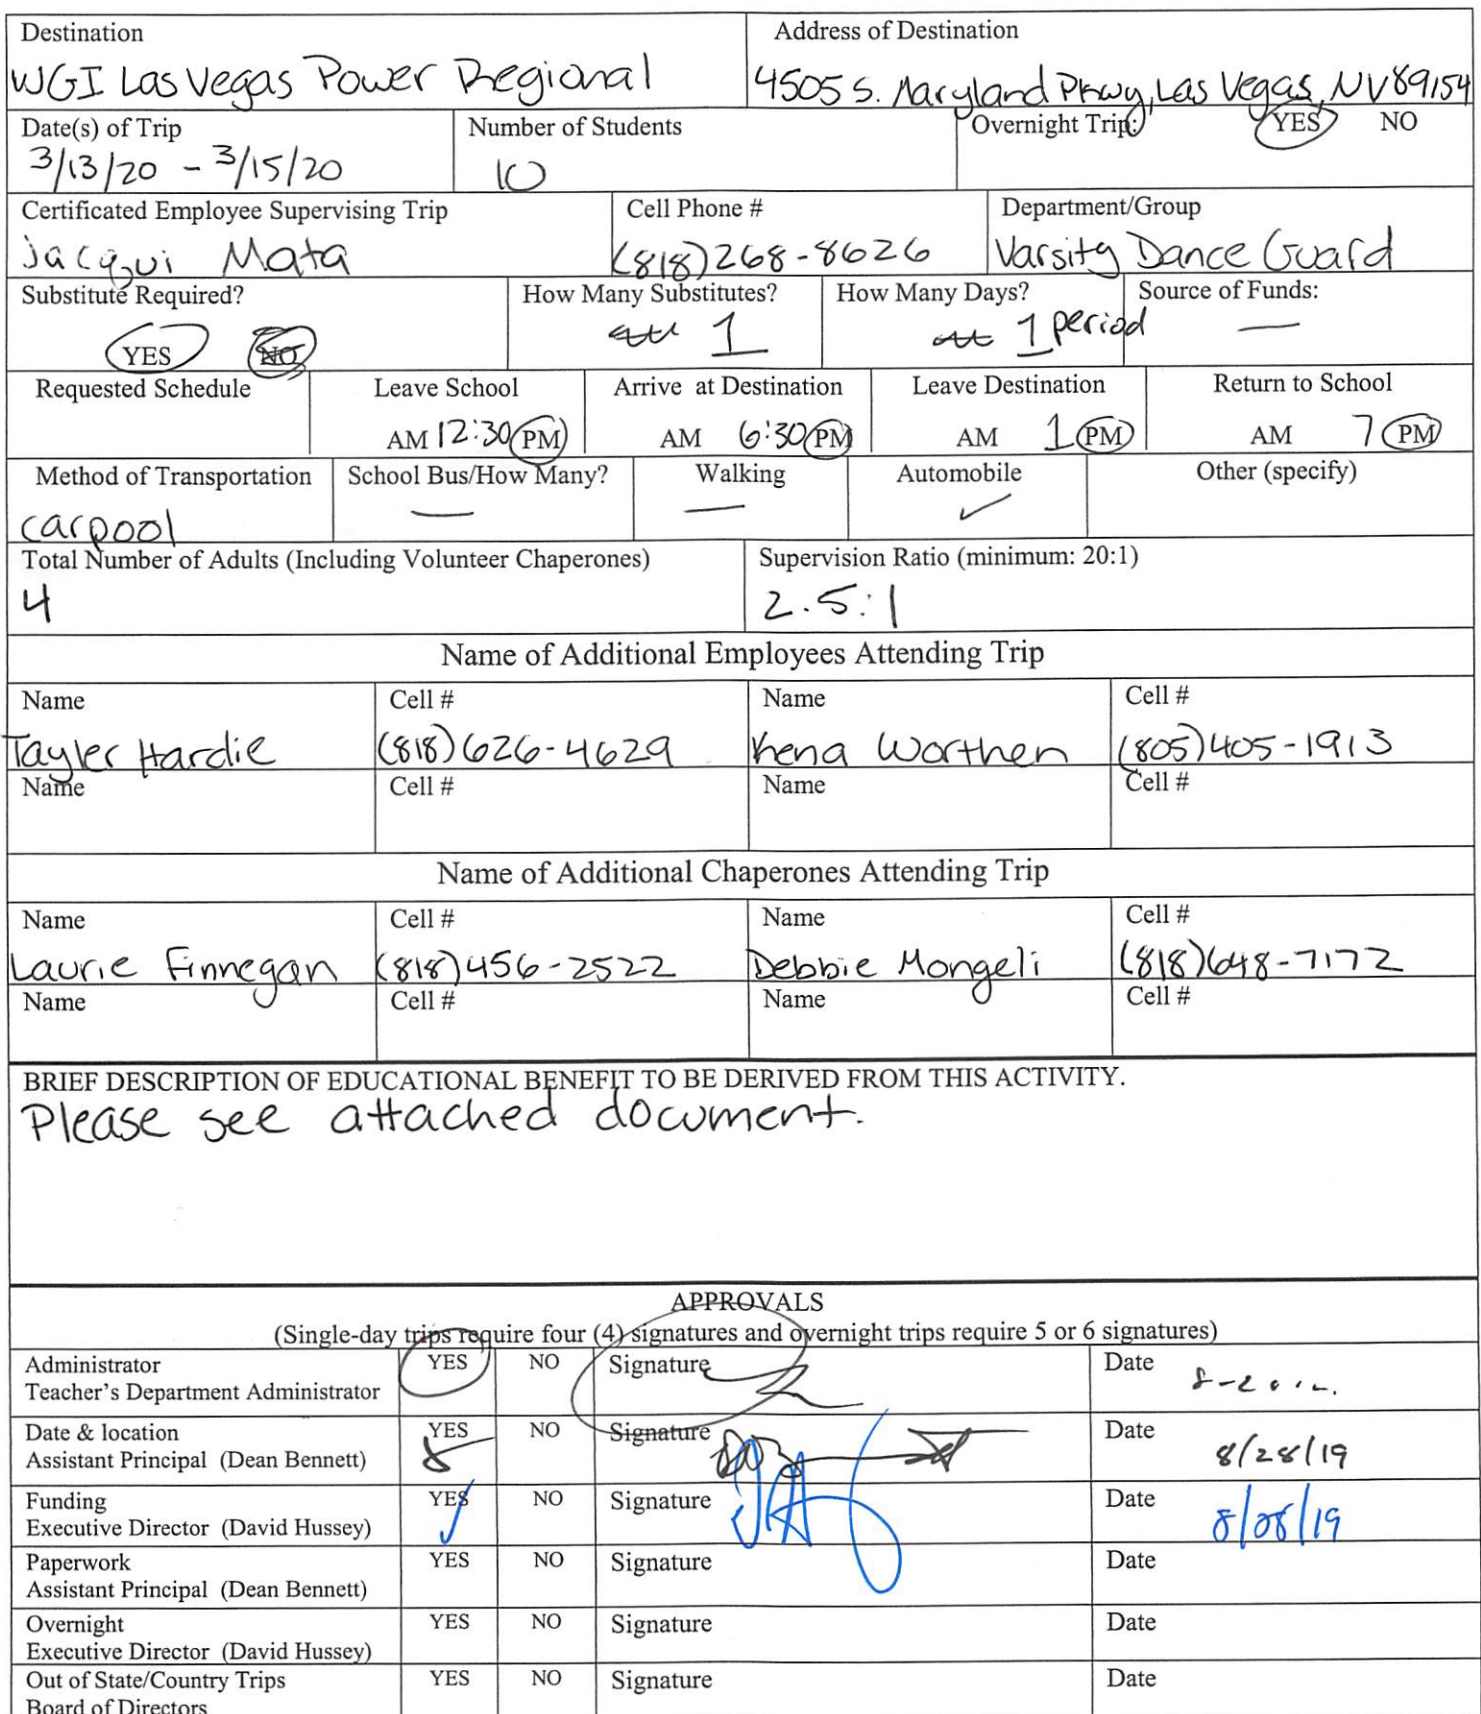 Destination
WGI Las Vegas Power Regional
Address of Destination
4505 S. Maryland Pkwy, Las Vegas, NV 89154
Date(s) of Trip
3/13/20 - 3/15/20
Number of Students
10
Overnight Trip: YES NO
Certificated Employee Supervising Trip
Jacqui Mata
Cell Phone #
(818)268-8626
Department/Group
Varsity Dance Guard
Substitute Required?
YES NO
How Many Substitutes?
1
How Many Days?
1 period
Source of Funds:
—
Requested Schedule
Leave School
AM 12:30 PM
Arrive at Destination
AM 6:30 PM
Leave Destination
AM 1 PM
Return to School
AM 7 PM
Method of Transportation
carpool
School Bus/How Many?
—
Walking
—
Automobile
✓
Other (specify)
Total Number of Adults (Including Volunteer Chaperones)
4
Supervision Ratio (minimum: 20:1)
2.5:1
Name of Additional Employees Attending Trip
Name Cell # Name Cell #
Tayler Hardie (818)626-4629 Kena Worthen (805)405-1913
Name Cell # Name Cell #
Name of Additional Chaperones Attending Trip
Name Cell # Name Cell #
Laurie Finnegan (818)456-2522 Debbie Mongeli (818)648-7172
Name Cell # Name Cell #
BRIEF DESCRIPTION OF EDUCATIONAL BENEFIT TO BE DERIVED FROM THIS ACTIVITY.
Please see attached document.
APPROVALS
(Single-day trips require four (4) signatures and overnight trips require 5 or 6 signatures)
Administrator YES NO Signature Date
Teacher's Department Administrator
Date & location YES NO Signature Date
Assistant Principal (Dean Bennett) 8/28/19
Funding YES NO Signature Date
Executive Director (David Hussey) 8/28/19
Paperwork YES NO Signature Date
Assistant Principal (Dean Bennett)
Overnight YES NO Signature Date
Executive Director (David Hussey)
Out of State/Country Trips YES NO Signature Date
Board of Directors